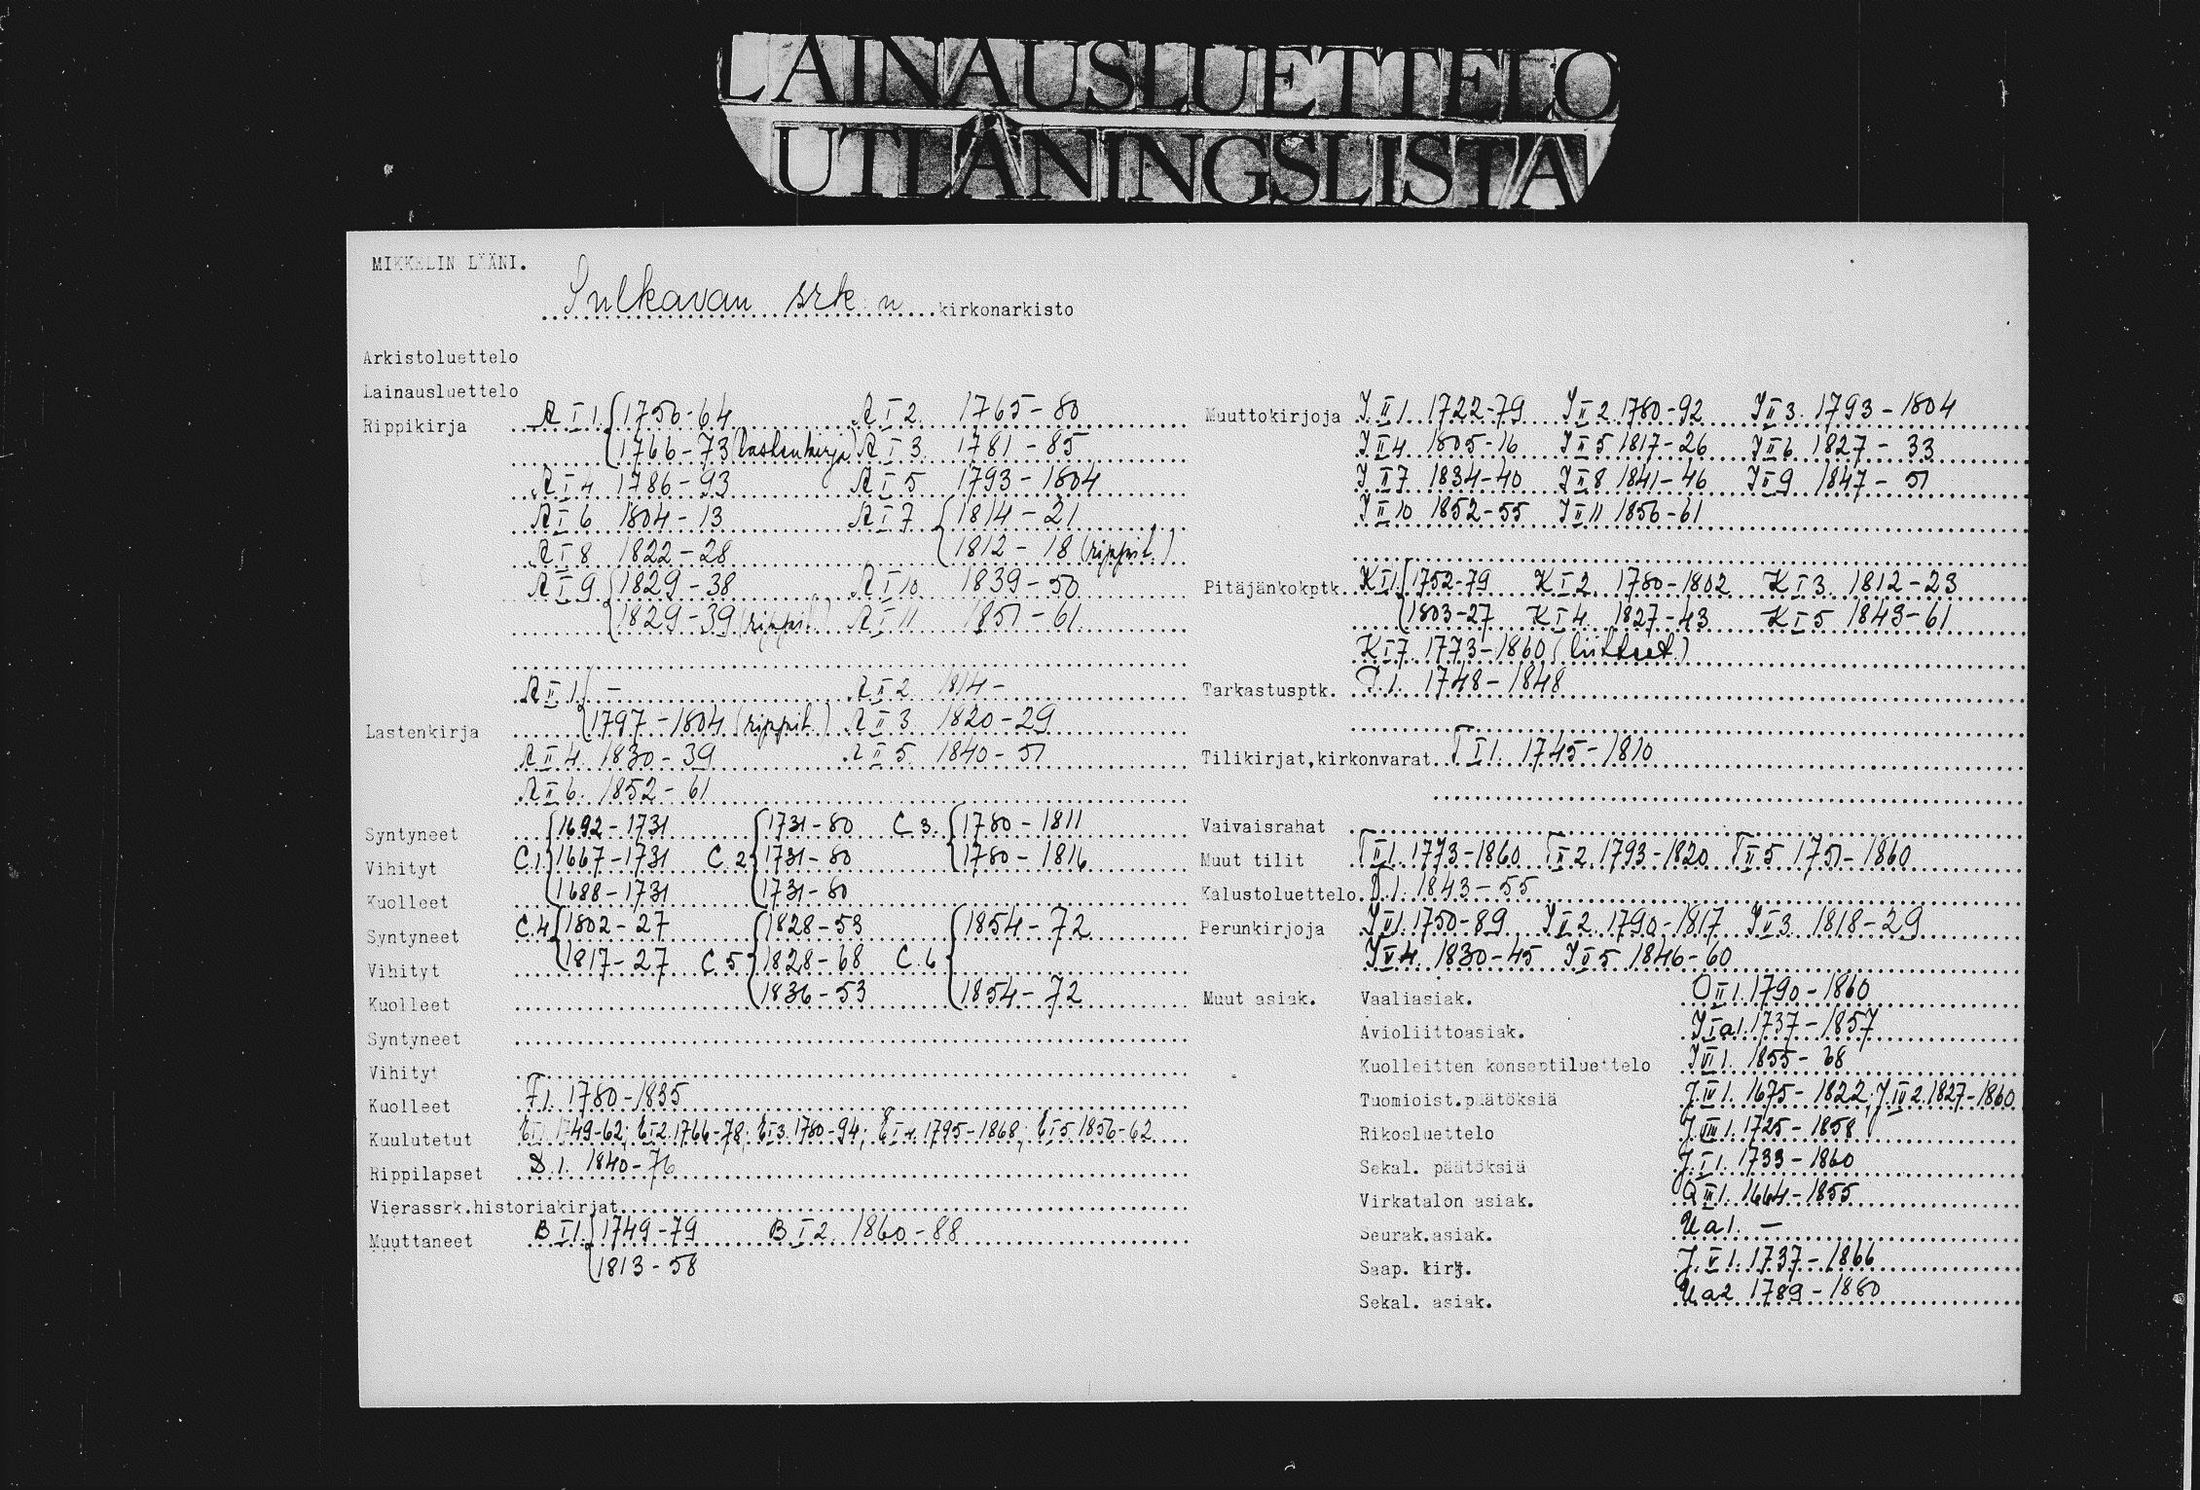 LAINAUSLUETTELO
UTLÅNINGSLISTA
MIKKELIN LÄÄNI.
Sulkavan srk:n kirkonarkisto
Arkistoluettelo
Lainausluettelo
Rippikirja A I 1. 1756-64 A I 2. 1765-80
1766-73 (lastenkirja) A I 3. 1781-85
A I 4 1786-93 A I 5 1793-1804
A I 6 1804-13 A I 7 1814-21
A I 8 1822-28 1812-18 (rippil.)
A I 9 1829-38 A I 10 1839-50
1829-39 (rippil.) A I 11 1851-61
A II 1. - A II 2. 1814-
Lastenkirja 1797-1804 (rippil.) A II 3. 1820-29
A II 4. 1830-39 A II 5. 1840-51
A II 6. 1852-61
Syntyneet 1692-1731 1731-80 C.3. 1780-1811
Vihityt C.1. 1667-1731 C.2. 1731-80 1780-1816
Kuolleet 1688-1731 1731-80
Syntyneet C.4. 1802-27 1828-53 1854-72
Vihityt 1817-27 C.5 1828-68 C.6
Kuolleet 1836-53 1854-72
Syntyneet
Vihityt
Kuolleet F.1. 1780-1835
Kuulutetut E I 1. 1749-62; E I 2. 1766-78; E I 3. 1780-94; E I 4. 1795-1868; E I 5. 1856-62
Rippilapset D.1. 1840-76
Vierassrk.historiakirjat
Muuttaneet B I 1. 1749-79 B I 2. 1860-88
1813-58
Muuttokirjoja J II 1. 1722-79 J II 2. 1780-92 J II 3. 1793-1804
J II 4 1805-16 J II 5. 1817-26 J II 6. 1827-33
J II 7 1834-40 J II 8 1841-46 J II 9 1847-51
J II 10 1852-55 J II 11 1856-61
Pitäjänkokptk. K I 1. 1752-79 K I 2. 1780-1802 K I 3. 1812-23
1803-27 K I 4. 1827-43 K I 5 1843-61
K I 7. 1773-1860 (liitteet)
Tarkastusptk. 1. 1748-1848
Tilikirjat,kirkonvarat T I 1. 1745-1810
Vaivaisrahat
Muut tilit T II 1. 1773-1860 T II 2. 1793-1820 T II 5 1751-1860
Kalustoluettelo 1. 1843-55
Perunkirjoja 1750-89 1790-1817 1818-29
1830-45 1846-60
Muut asiak. Vaaliasiak. O II 1. 1790-1860
Avioliittoasiak. J I a 1. 1737-1857
Kuolleitten konseptiluettelo 1855-68
Tuomioist.päätöksiä J IV 1. 1675-1822; J IV 2. 1827-1860
Rikosluettelo 1725-1858
Sekal. päätöksiä J I 1. 1733-1860
Virkatalon asiak. 1664-1855
Seurak.asiak. U a 1. -
Saap. kirj. J. V 1. 1737-1866
Sekal. asiak. U a 2 1789-1880